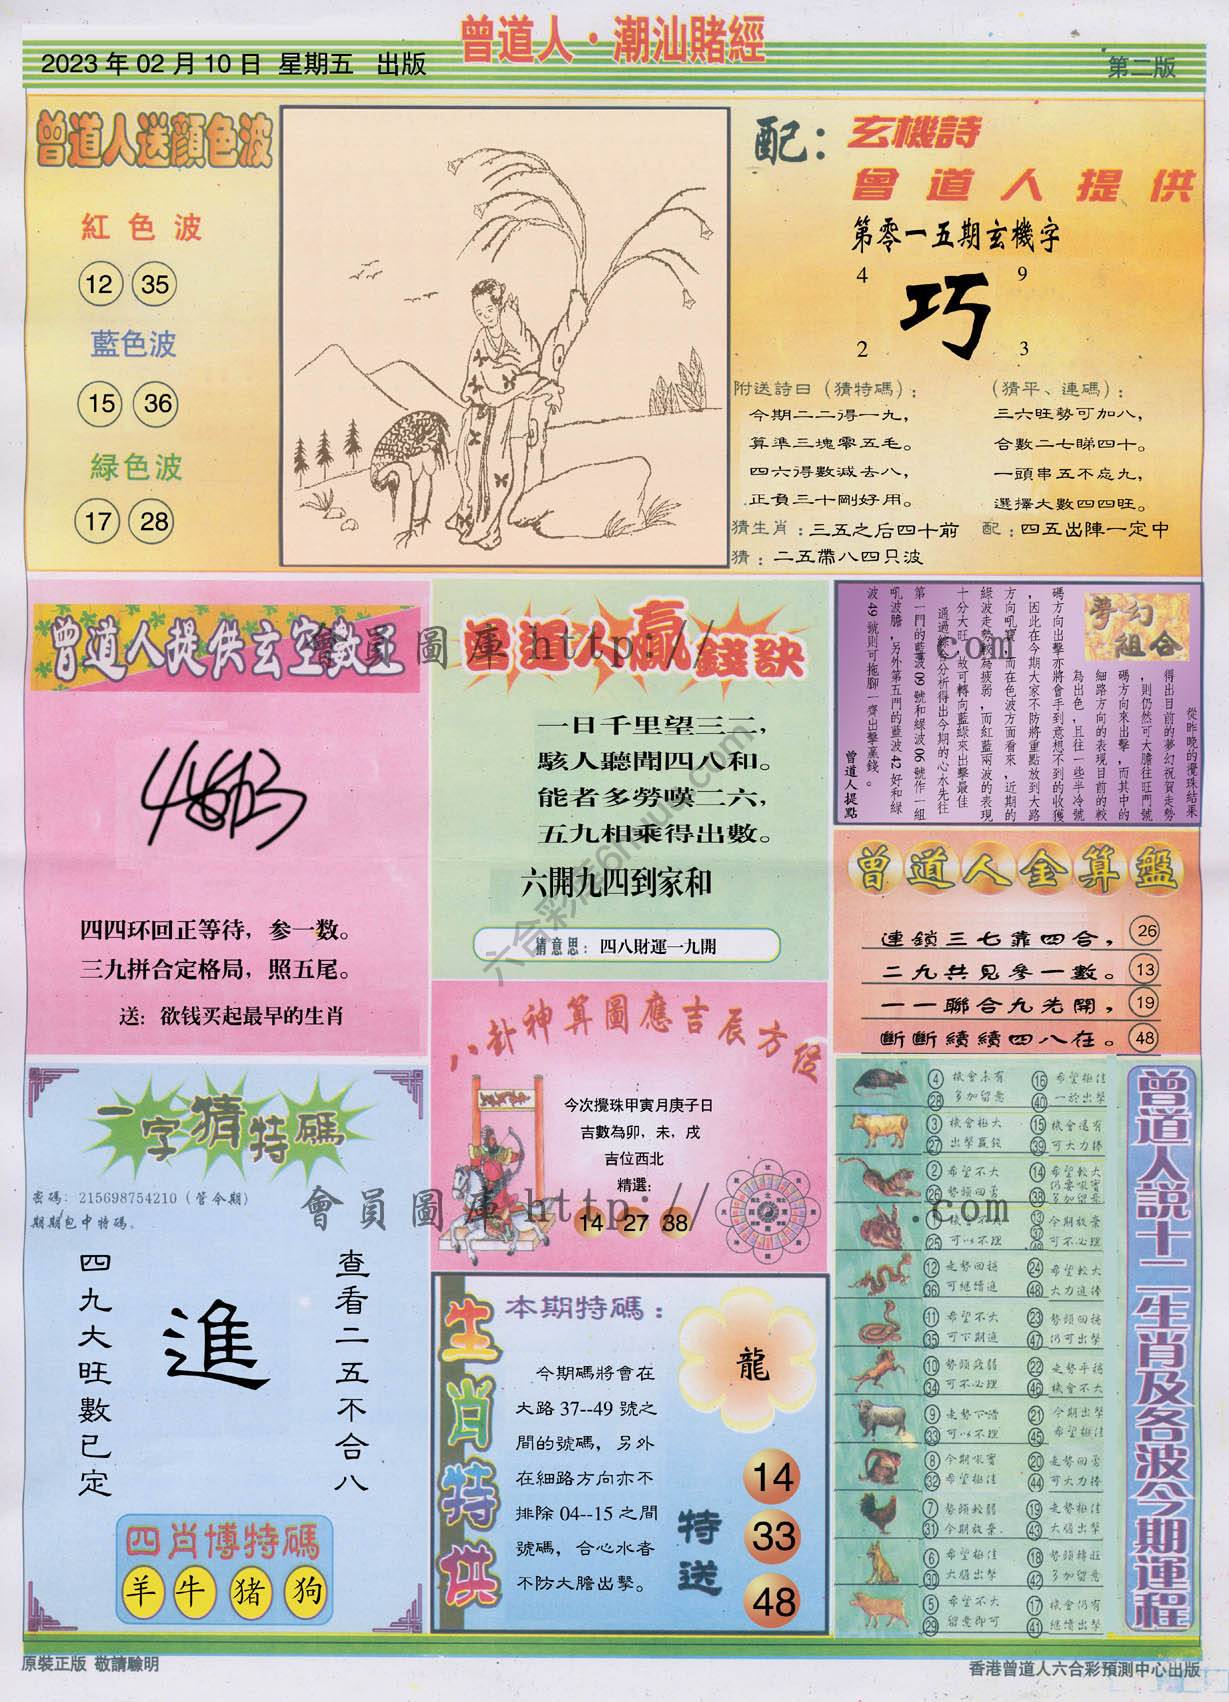 曾道人·潮汕賭經
2023 年 02 月 10 日 星期五 出版
第二版
曾道人送顏色波
紅色波
12 35
藍色波
15 36
緑色波
17 28
配：玄機詩
曾道人提供
第零一五期玄機字
4 9
巧
2 3
附送詩曰（猜特碼）：
今期二二得一九，
算準三塊零五毛。
四六得數減去八，
正負三十剛好用。
（猜平、連碼）：
三六旺勢可加八，
合數二七睇四十。
一頭串五不忘九，
選擇大數四四旺。
猜生肖：三五之后四十前
配：四五出陣一定中
猜：二五帶八四只波
曾道人提供玄空數王
四四环回正等待，参一数。
三九拼合定格局，照五尾。
送：欲钱买起最早的生肖
曾道人贏錢訣
一日千里望三二，
駭人聽聞四八和。
能者多勞嘆二六，
五九相乘得出數。
六開九四到家和
猜意思：四八財運一九開
夢幻
組合
從昨晚的攪珠結果
得出目前的夢幻祝賀走勢
，則仍然可大膽往旺門號
碼方向來出擊，而其中的
細路方向的表現目前的較
為出色，且往一些半冷號
碼方向出擊亦將會手到意想不到的收獲
，因此在今期大家不防將重點放到大路
方向吼寶，而在色波方面看來，近期的
綠波走勢較為疲弱，而紅藍兩波的表現
十分大旺，故可轉向藍綠來出擊最佳
通過綜合分析得出今期的心水先往
第一門的藍波 09 號和綠波 06 號作一組
吼波膽，另外第五門的藍波 42 好和綠
波 49 號則可拖腳一齊出擊贏錢。
曾道人提點
曾道人金算盤
連鎖三七靠四合， 26
二九共見參一數。 13
一一聯合九先開， 19
斷斷續續四八在。 48
八卦神算圖應吉辰方位
今次攪珠甲寅月庚子日
吉數為卯，未，戌
吉位西北
精選：
14 27 38
一字猜特碼
密碼：215698754210（管令期）
期期包中特碼。
查看二五不合八
進
四九大旺數已定
四肖博特碼
羊 牛 猪 狗
生肖特供
本期特碼：
今期碼將會在
大路 37--49 號之
間的號碼，另外
在細路方向亦不
排除 04--15 之間
號碼，合心水者
不防大膽出擊。
龍
特送
14
33
48
曾道人說十二生肖及各波今期運程
4 機會未有 16 希望極佳
28 多加留意 40 一於出擊
3 機會極大 15 機會還有
27 出擊贏錢 39 可大力捧
2 希望不大 14 希望較大
26 勢頭回勇 仍要吼實
38 多加留意
1 機會不大 13 今期放棄
25 可以不理 37 49 可不必理
12 走勢回穩 24 希望較大
36 可繼續追 48 大力追捧
11 希望不大 23 勢頭回穩
35 可下期追 47 仍可出擊
10 勢頭疲弱 22 走勢平穩
34 可不必理 46 機會不大
9 走勢下滑 21 今期出擊
33 可以不理 45 希望極佳
8 今期吼實 20 走勢回勇
32 希望極佳 44 可大力捧
7 勢頭較弱 19 走勢極佳
31 今期放棄. 43 大膽出擊
6 希望極佳 18 勢頭轉旺
30 大膽出擊 42 多加留意
5 希望不大 17 機會仍有
29 留意即可 41 繼續出擊
會員圖庫 http:// .com
會員圖庫 http:// .com
六合彩库6huo.com
原裝正版 敬請驗明
香港曾道人六合彩預測中心出版